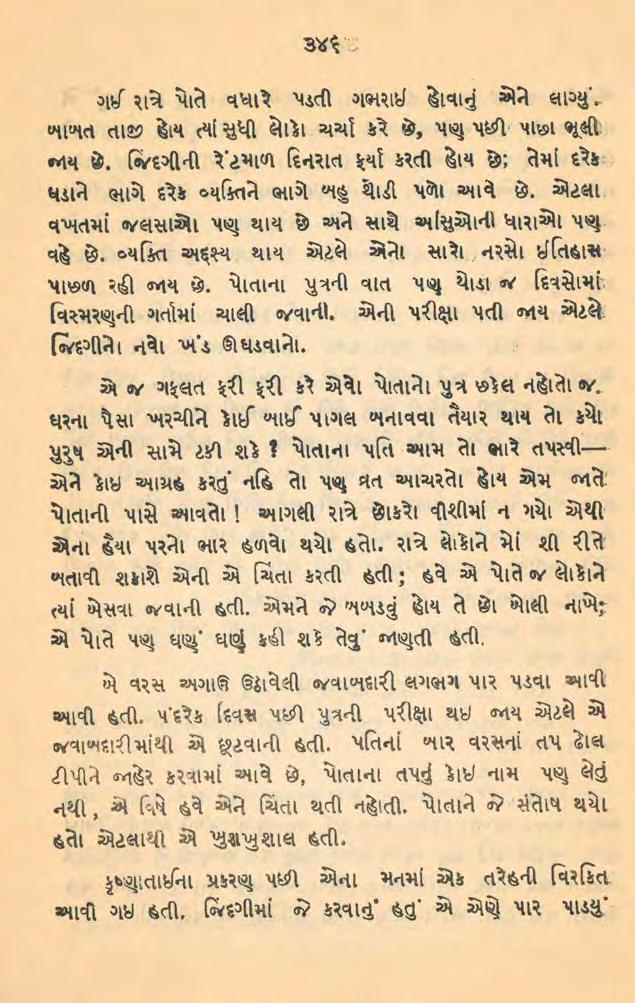 ૩૪૬
ગઈ રાત્રે પોતે વધારે પડતી ગભરાઈ હોવાનું એને લાગ્યું.
બાબત તાજી હોય ત્યાં સુધી લોકો ચર્ચા કરે છે, પણ પછી પાછા ભૂલી
જાય છે. જિંદગીની રેંટમાળ દિનરાત ફર્યા કરતી હોય છે; તેમાં દરેક
ઘડાને ભાગે દરેક વ્યક્તિને ભાગે બહુ થોડી પળો આવે છે. એટલા
વખતમાં જલસાઓ પણ થાય છે અને સાથે આંસુઓની ધારાઓ પણ
વહે છે. વ્યક્તિ અદૃશ્ય થાય એટલે એનો સારો નરસો ઇતિહાસ
પાછળ રહી જાય છે. પોતાના પુત્રની વાત પણ થોડા જ દિવસોમાં
વિસ્મરણની ગર્તામાં ચાલી જવાની. એની પરીક્ષા પતી જાય એટલે
જિંદગીનો નવો ખંડ ઊઘડવાનો.
એ જ ગફલત ફરી ફરી કરે એવો પોતાનો પુત્ર છકેલ નહોતો જ.
ઘરના પૈસા ખરચીને કોઈ બાઈ પાગલ બનાવવા તૈયાર થાય તો કયો
પુરુષ એની સામે ટકી શકે ? પોતાના પતિ આમ તો ભારે તપસ્વી—
એને કોઇ આગ્રહ કરતું નહિ તો પણ વ્રત આચરતો હોય એમ જાતે
પોતાની પાસે આવતો ! આગલી રાત્રે છોકરો વીશીમાં ન ગયો એથી
એના હૈયા પરનો ભાર હળવો થયો હતો. રાત્રે લોકોને મોં શી રીતે
બતાવી શકાશે એની એ ચિંતા કરતી હતી; હવે એ પોતે જ લોકોને
ત્યાં બેસવા જવાની હતી. એમને જે બબડવું હોય તે છો બોલી નાખે;
એ પોતે પણ ઘણું ઘણું કહી શકે તેવું જાણતી હતી.
બે વરસ અગાઉ ઉઠાવેલી જવાબદારી લગભગ પાર પડવા આવી
આવી હતી. પંદરેક દિવસ પછી પુત્રની પરીક્ષા થઇ જાય એટલે એ
જવાબદારીમાંથી એ છૂટવાની હતી. પતિનાં બાર વરસનાં તપ ઢોલ
ટીપીને જાહેર કરવામાં આવે છે, પોતાના તપનું કોઇ નામ પણ લેતું
નથી, એ વિષે હવે એને ચિંતા થતી નહોતી. પોતાને જે સંતોષ થયો
હતો એટલાથી એ ખુશખુશાલ હતી.
કૃષ્ણાતાઈના પ્રકરણ પછી એના મનમાં એક તરેહની વિરકિત
આવી ગઇ હતી. જિંદગીમાં જે કરવાનું હતું એ એણે પાર પાડયું